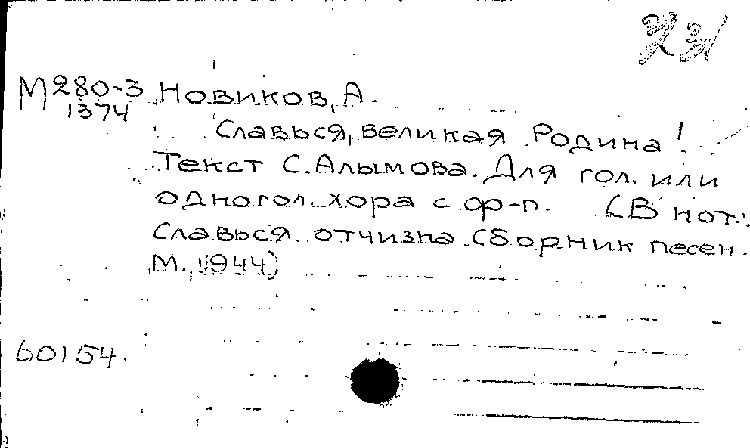 М280-3 Новиков, А.
1374
Славься, великая Родина!
Текст С. Алымова. Для гол. или
одногол. хора с ф-п. (В нот.:
Славься отчизна. Сборник песен.
М., 1944)
60154.